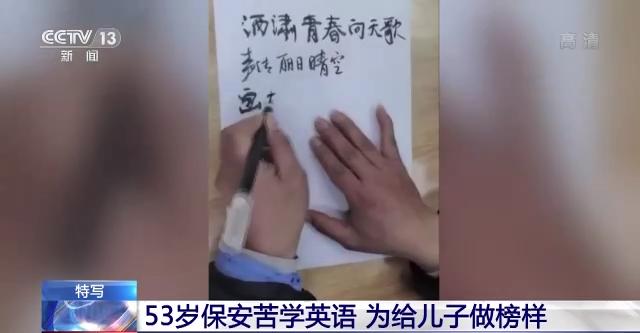 CCTV 13
新闻
高清
洒潇青春向天歌
声传丽日晴空
画
特写
53岁保安苦学英语 为给儿子做榜样